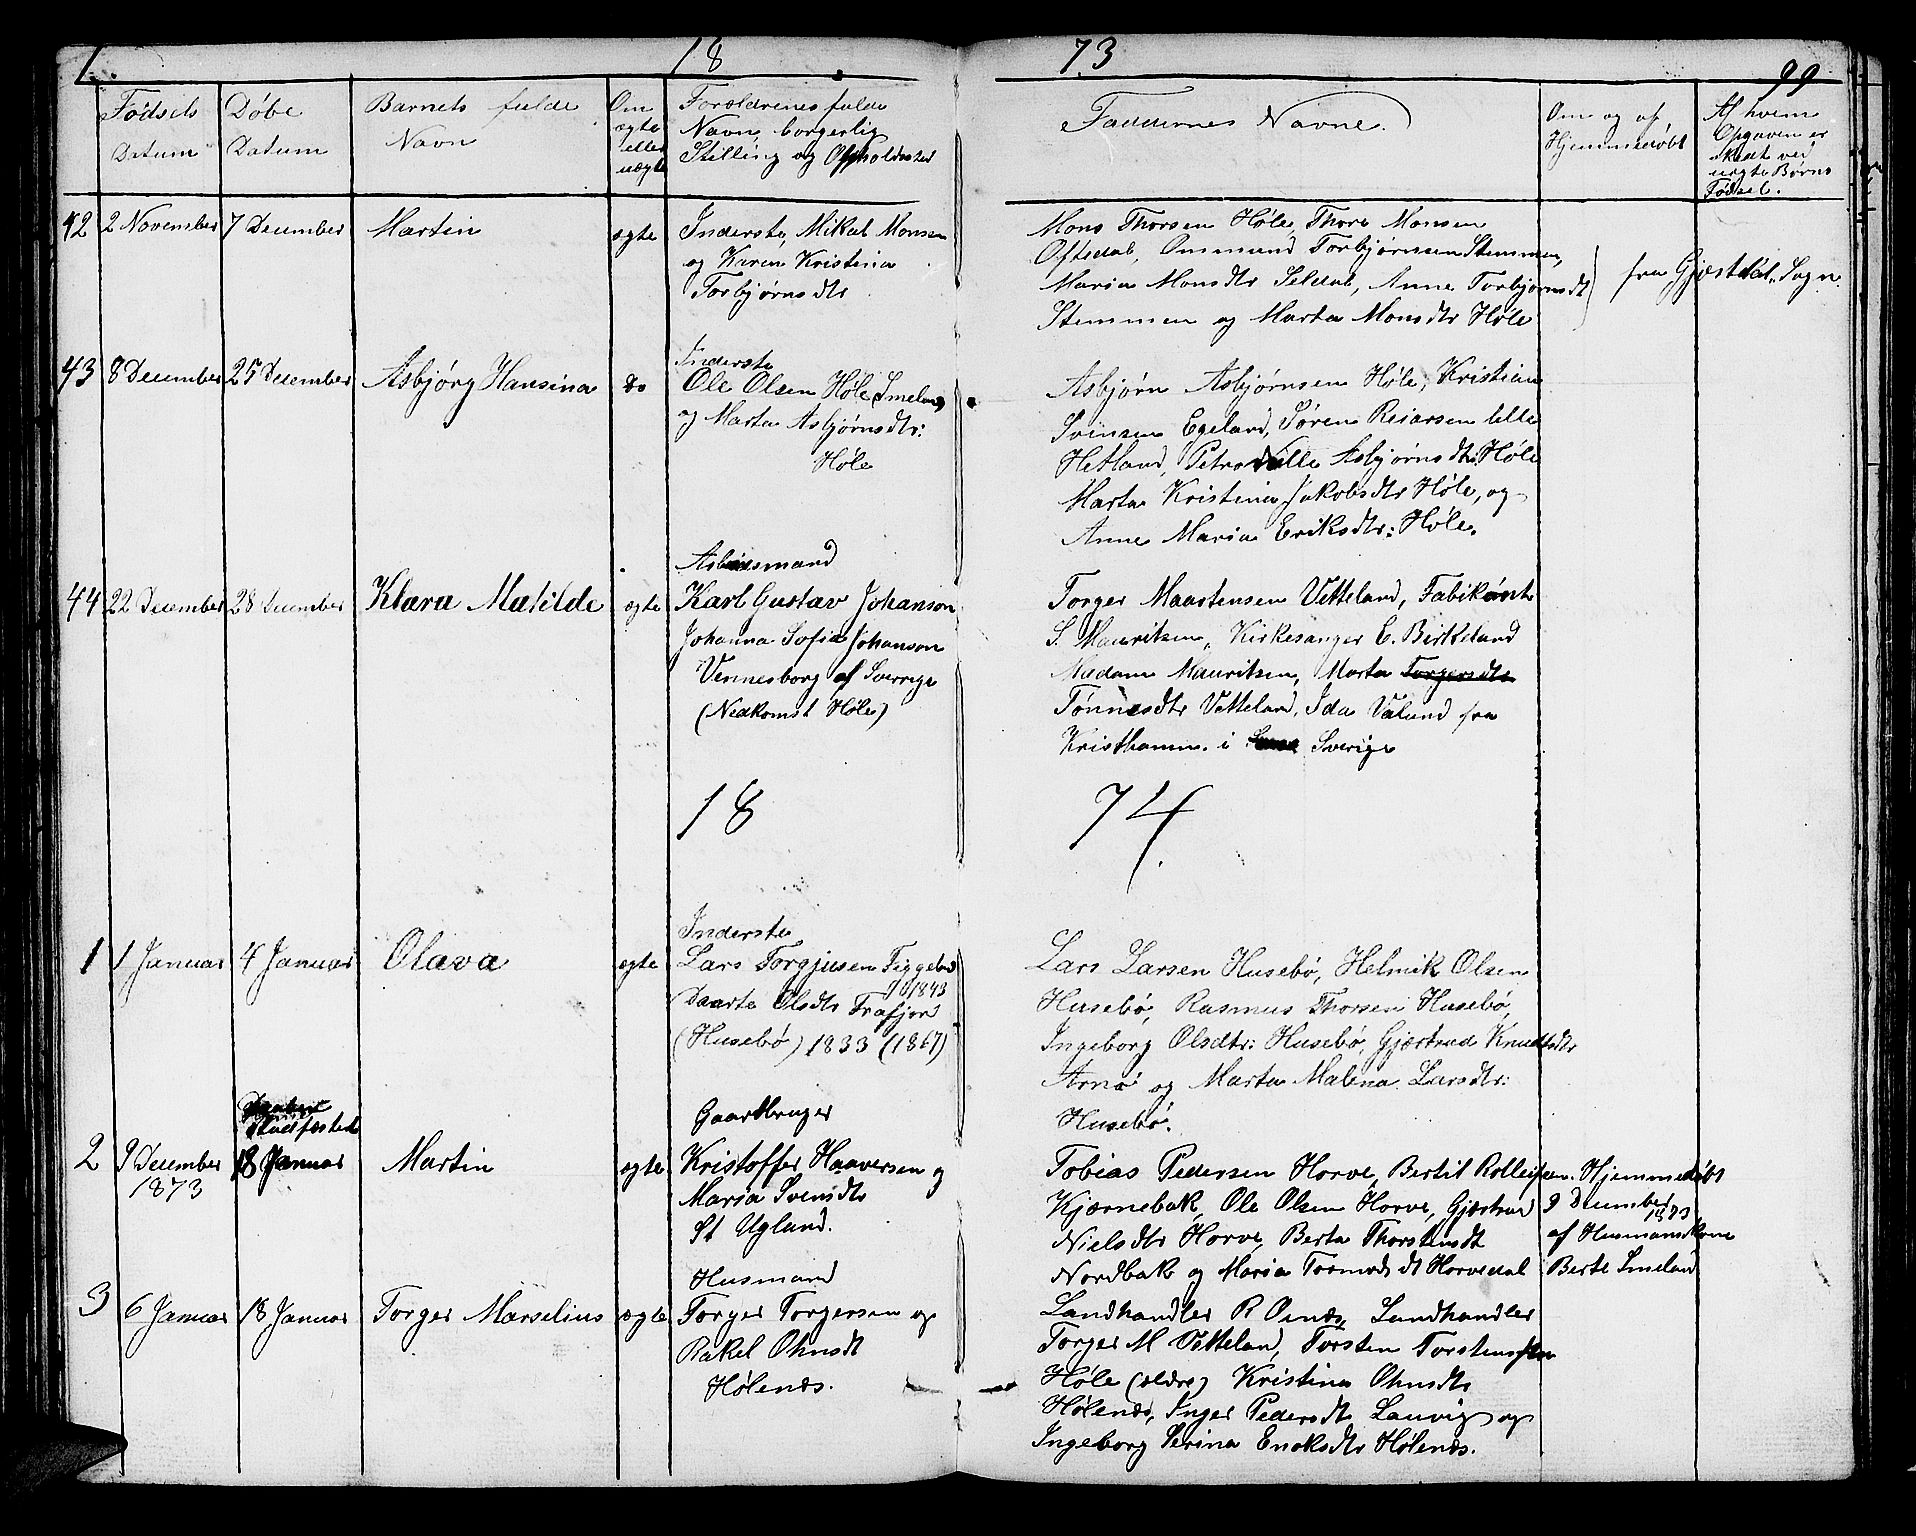 1. 18 73 99
Fødsels Datum
Døbe Datum
Barnets fulde Navn
Om ægte eller uægte
Forældrenes fulde Navn, borgerlig Stilling og Opholdssted
Faddernes Navne.
Om og af Hjemmedøbt
Af hvem Opgaven er skedt ved uægte Børns Fødsel.
42 2 November 7 December Martin ægte
Inderste, Mikal Monsen
og Karen Kristina
Torbjørnsdtr
Mons Thorsen Høle, Thore Monsen
Oftedal, Ommund Torbjørnsen Stemmen,
Maria Monsdtr Seldal, Anne Torbjørnsdt
Stemmen og Marta Monsdtr Høle
fra Gjæstdal, Sogn.
43 8 December 25 December Asbjørg Hansina do
Inderste
Ole Olsen Høle (Imeland)
og Marta Asbjørnsdtr:
Høle
Asbjørn Asbjørnsen Høle, Kristian
Svensen Egeland, Søren Reiarsen lille
Hetland, Petronille Asbjørnsdtr: Høle
Marta Kristina Jakobsdtr Høle, og
Anne Maria Eriksdtr: Høle.
44 22 December 28 December Klara Matilde ægte
Karl Gustav Johanson
Johanna Sofia Johanson
Vennesborg af Sverrige
(Nedkomst Høle)
Torger Maartensen Vetteland, Fabikønt
S. Mauritsen, Kirkesanger E. Birkeland
Madam Mauritsen, Marta Torgersdtr
Tønnesdtr Vetteland, Ida Valund fra
Kristhamn i Sverige
18 74.
1 1 Januar 4 Januar Olava ægte
Inderste
Lars Torgjusen Tiggebø
1843
Daarte Olsdtr Frafjor
(Husebø) 1833 (1867)
Lars Larsen Husebø, Helmik Olsen
Husebø, Rasmus Thorsen Husebø,
Ingeborg Olsdtr: Husebø, Gjærtrud Knudtsdtr
Arnø og Marta Malena Larsdtr:
Husebø.
Stadfæsted
2 9 December 1873 18 Januar Martin ægte
Gaartbruger
Kristoffer Haaversen og
Maria Svendtr
St Ugland.
Tobias Pedersen Horve, Bertil Rolleifsen
Kjærnebak, Ole Olsen Horve, Gjærtrud
Nielsdtr Horve, Berta Thorstensdt
Nordbak og Maria Tormodsdt Horvedal
Hjemmedøbt
9 December 1873
af Husmandskone
Berte Imeland
3 6 Januar 18 Januar Torger Marselius ægte
Husmand
Torger Torgersen og
Rakel Ohnsdt
Hølenæs.
Landhandler R Osnæs, Landhandler
Torger M Vetteland, Torsten Torstensen
Høle (ældre) Kristina Ohnsdtr
Hølenæs, Inger Pedersdtr Lauvig og
Ingeborg Serina Enoksdtr Hølenæs.